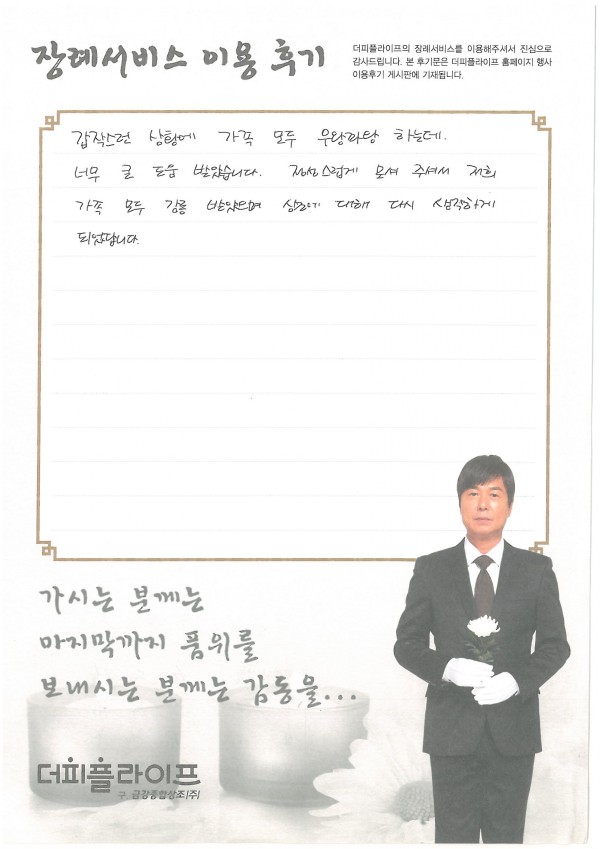 장례서비스 이용 후기
더피플라이프의 장례서비스를 이용해주셔서 진심으로
감사드립니다. 본 후기문은 더피플라이프 홈페이지 행사
이용후기 게시판에 기재됩니다.
갑작스런 상황에 가족 모두 우왕좌왕 하는데.
너무 큰 도움 받았습니다. 정성스럽게 모셔 주셔서 저희
가족 모두 감동 받았으며 상조에 대해 다시 생각하게
되었답니다.
가시는 분께는
마지막까지 품위를
보내시는 분께는 감동을...
더피플라이프
구. 금강종합상조(주)